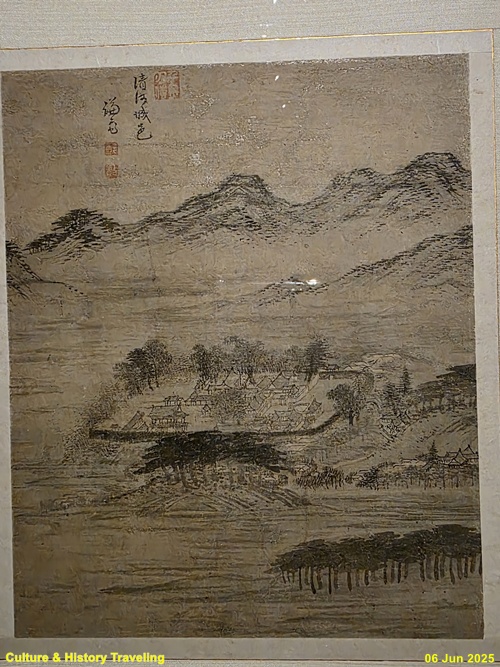 清河城邑
謙齋
Culture & History Traveling
06 Jun 2025